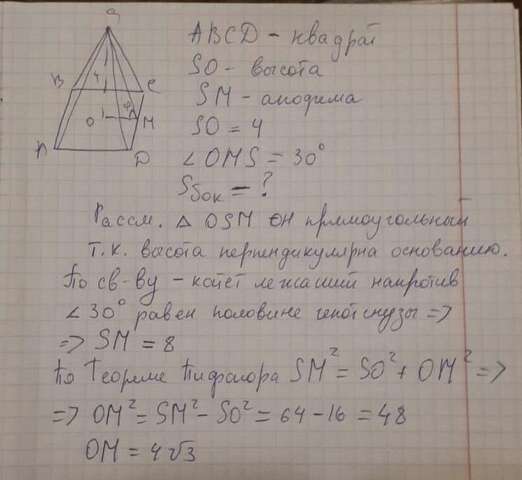 S
ABCD – квадрат
SO – высота
B
4
C
SM – апофема
O
M
SO = 4
A
D
∠OMS = 30°
Sбок = ?
Рассм. △ OSM он прямоугольный
т.к. высота перпендикулярна основанию.
По св-ву – катет лежащий напротив
∠30° равен половине гипотенузы =>
=> SM = 8
По Теореме Пифагора SM² = SO² + OM² =>
=> OM² = SM² – SO² = 64 – 16 = 48
OM = 4√3